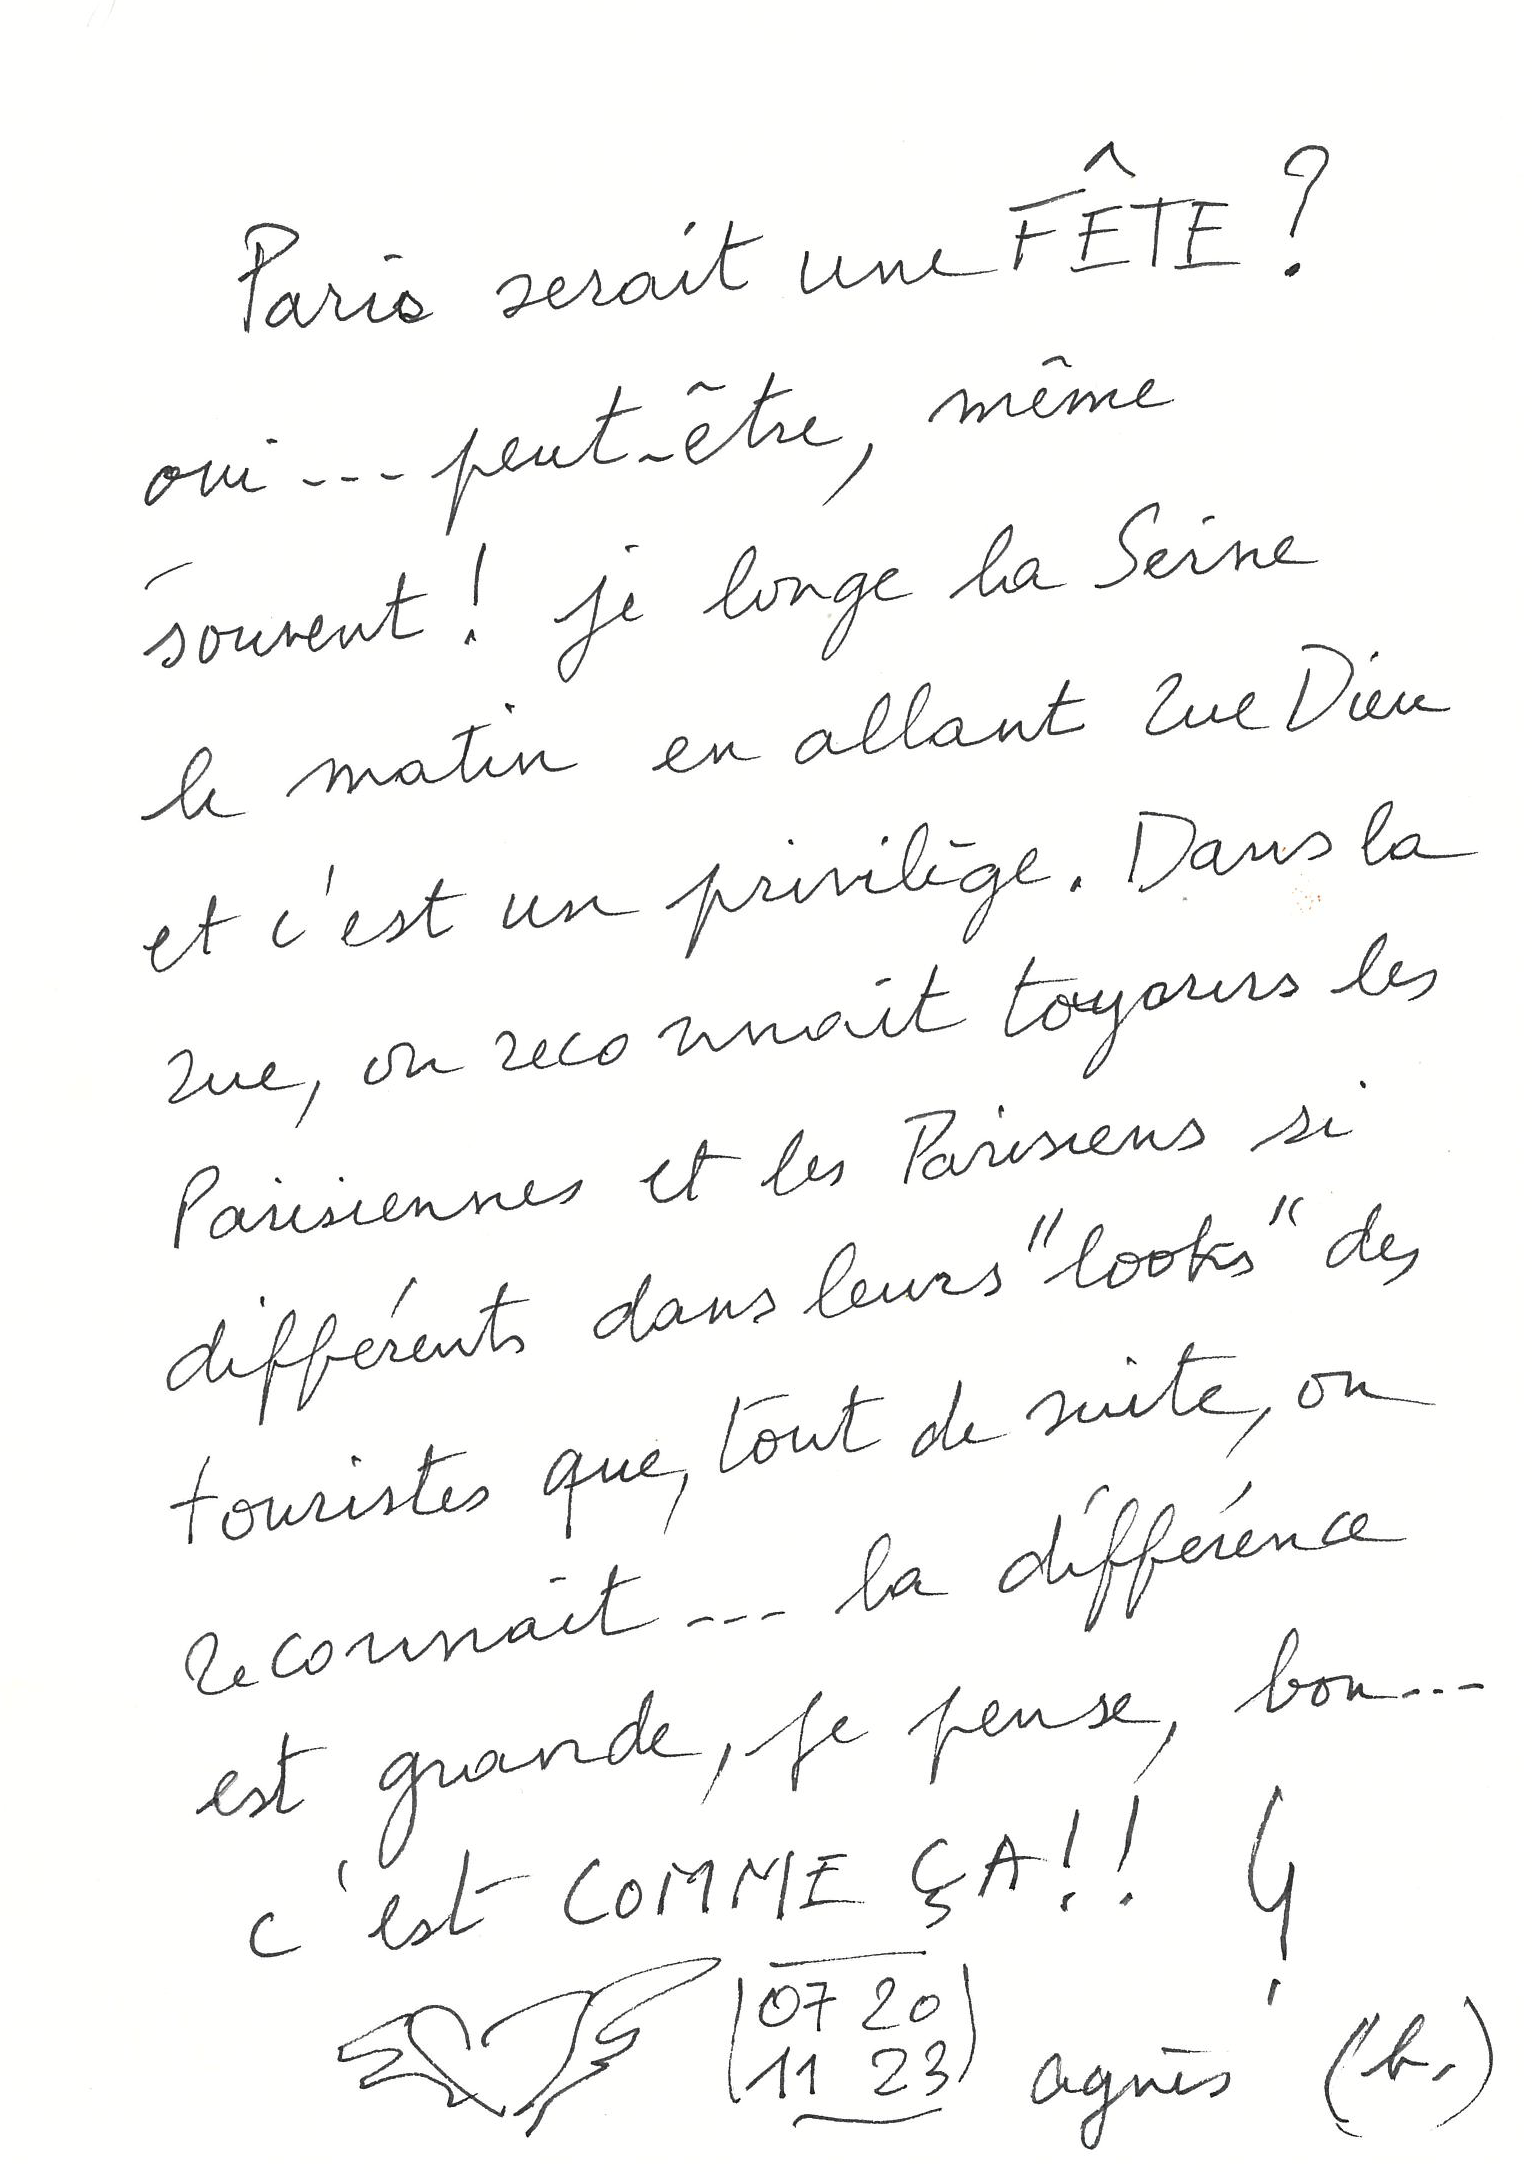 Paris serait une FÊTE ?
oui --- peut-être, même
souvent ! je longe la Seine
le matin en allant rue Dieu
et c'est un privilège. Dans la
rue, on reconnait toujours les
Parisiennes et les Parisiens si
différents dans leurs "looks" des
touristes que, tout de suite, on
reconnait --- la différence
est grande, je pense, bon ---
c'est COMME ÇA !!
07 20
11 23
agnès (b.)